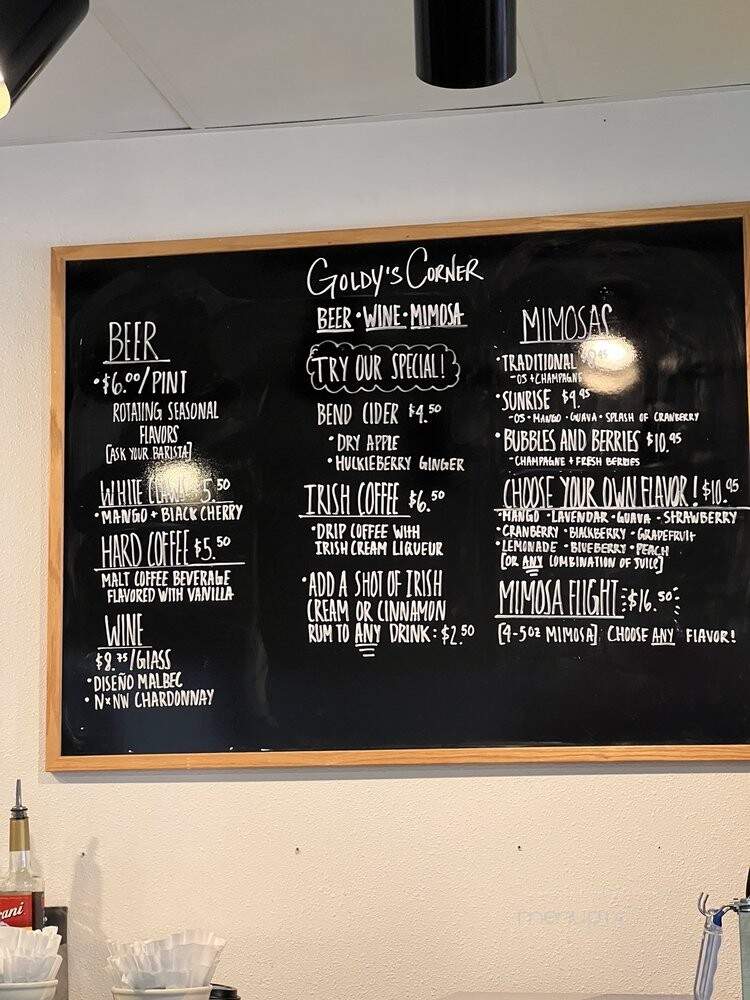 GOLDY'S CORNER
BEER • WINE • MIMOSA
BEER
• $6.00/PINT
ROTATING SEASONAL
FLAVORS
[ASK YOUR BARISTA]
WHITE 5.50
• MANGO + BLACK CHERRY
HARD COFFEE $5.50
MALT COFFEE BEVERAGE
FLAVORED WITH VANILLA
WINE
$8.75/GLASS
• DISEÑO MALBEC
• NxNW CHARDONNAY
TRY OUR SPECIAL!
BEND CIDER $4.50
• DRY APPLE
• HUCKIEBERRY GINGER
IRISH COFFEE $6.50
• DRIP COFFEE WITH
IRISH CREAM LIQUEUR
• ADD A SHOT OF IRISH
CREAM OR CINNAMON
RUM TO ANY DRINK: $2.50
MIMOSAS
• TRADITIONAL
- OJ + CHAMPAGNE
• SUNRISE $9.95
- OJ • MANGO • GUAVA • SPLASH OF CRANBERRY
• BUBBLES AND BERRIES $10.95
- CHAMPAGNE + FRESH BERRIES
CHOOSE YOUR OWN FLAVOR! $10.95
• MANGO • LAVENDAR • GUAVA • STRAWBERRY
• CRANBERRY • BLACKBERRY • GRAPEFRUIT
• LEMONADE • BLUEBERRY • PEACH
[OR ANY COMBINATION OF JUICE]
MIMOSA FLIGHT $16.50
[4-5oz MIMOSA] CHOOSE ANY FLAVOR!
ani